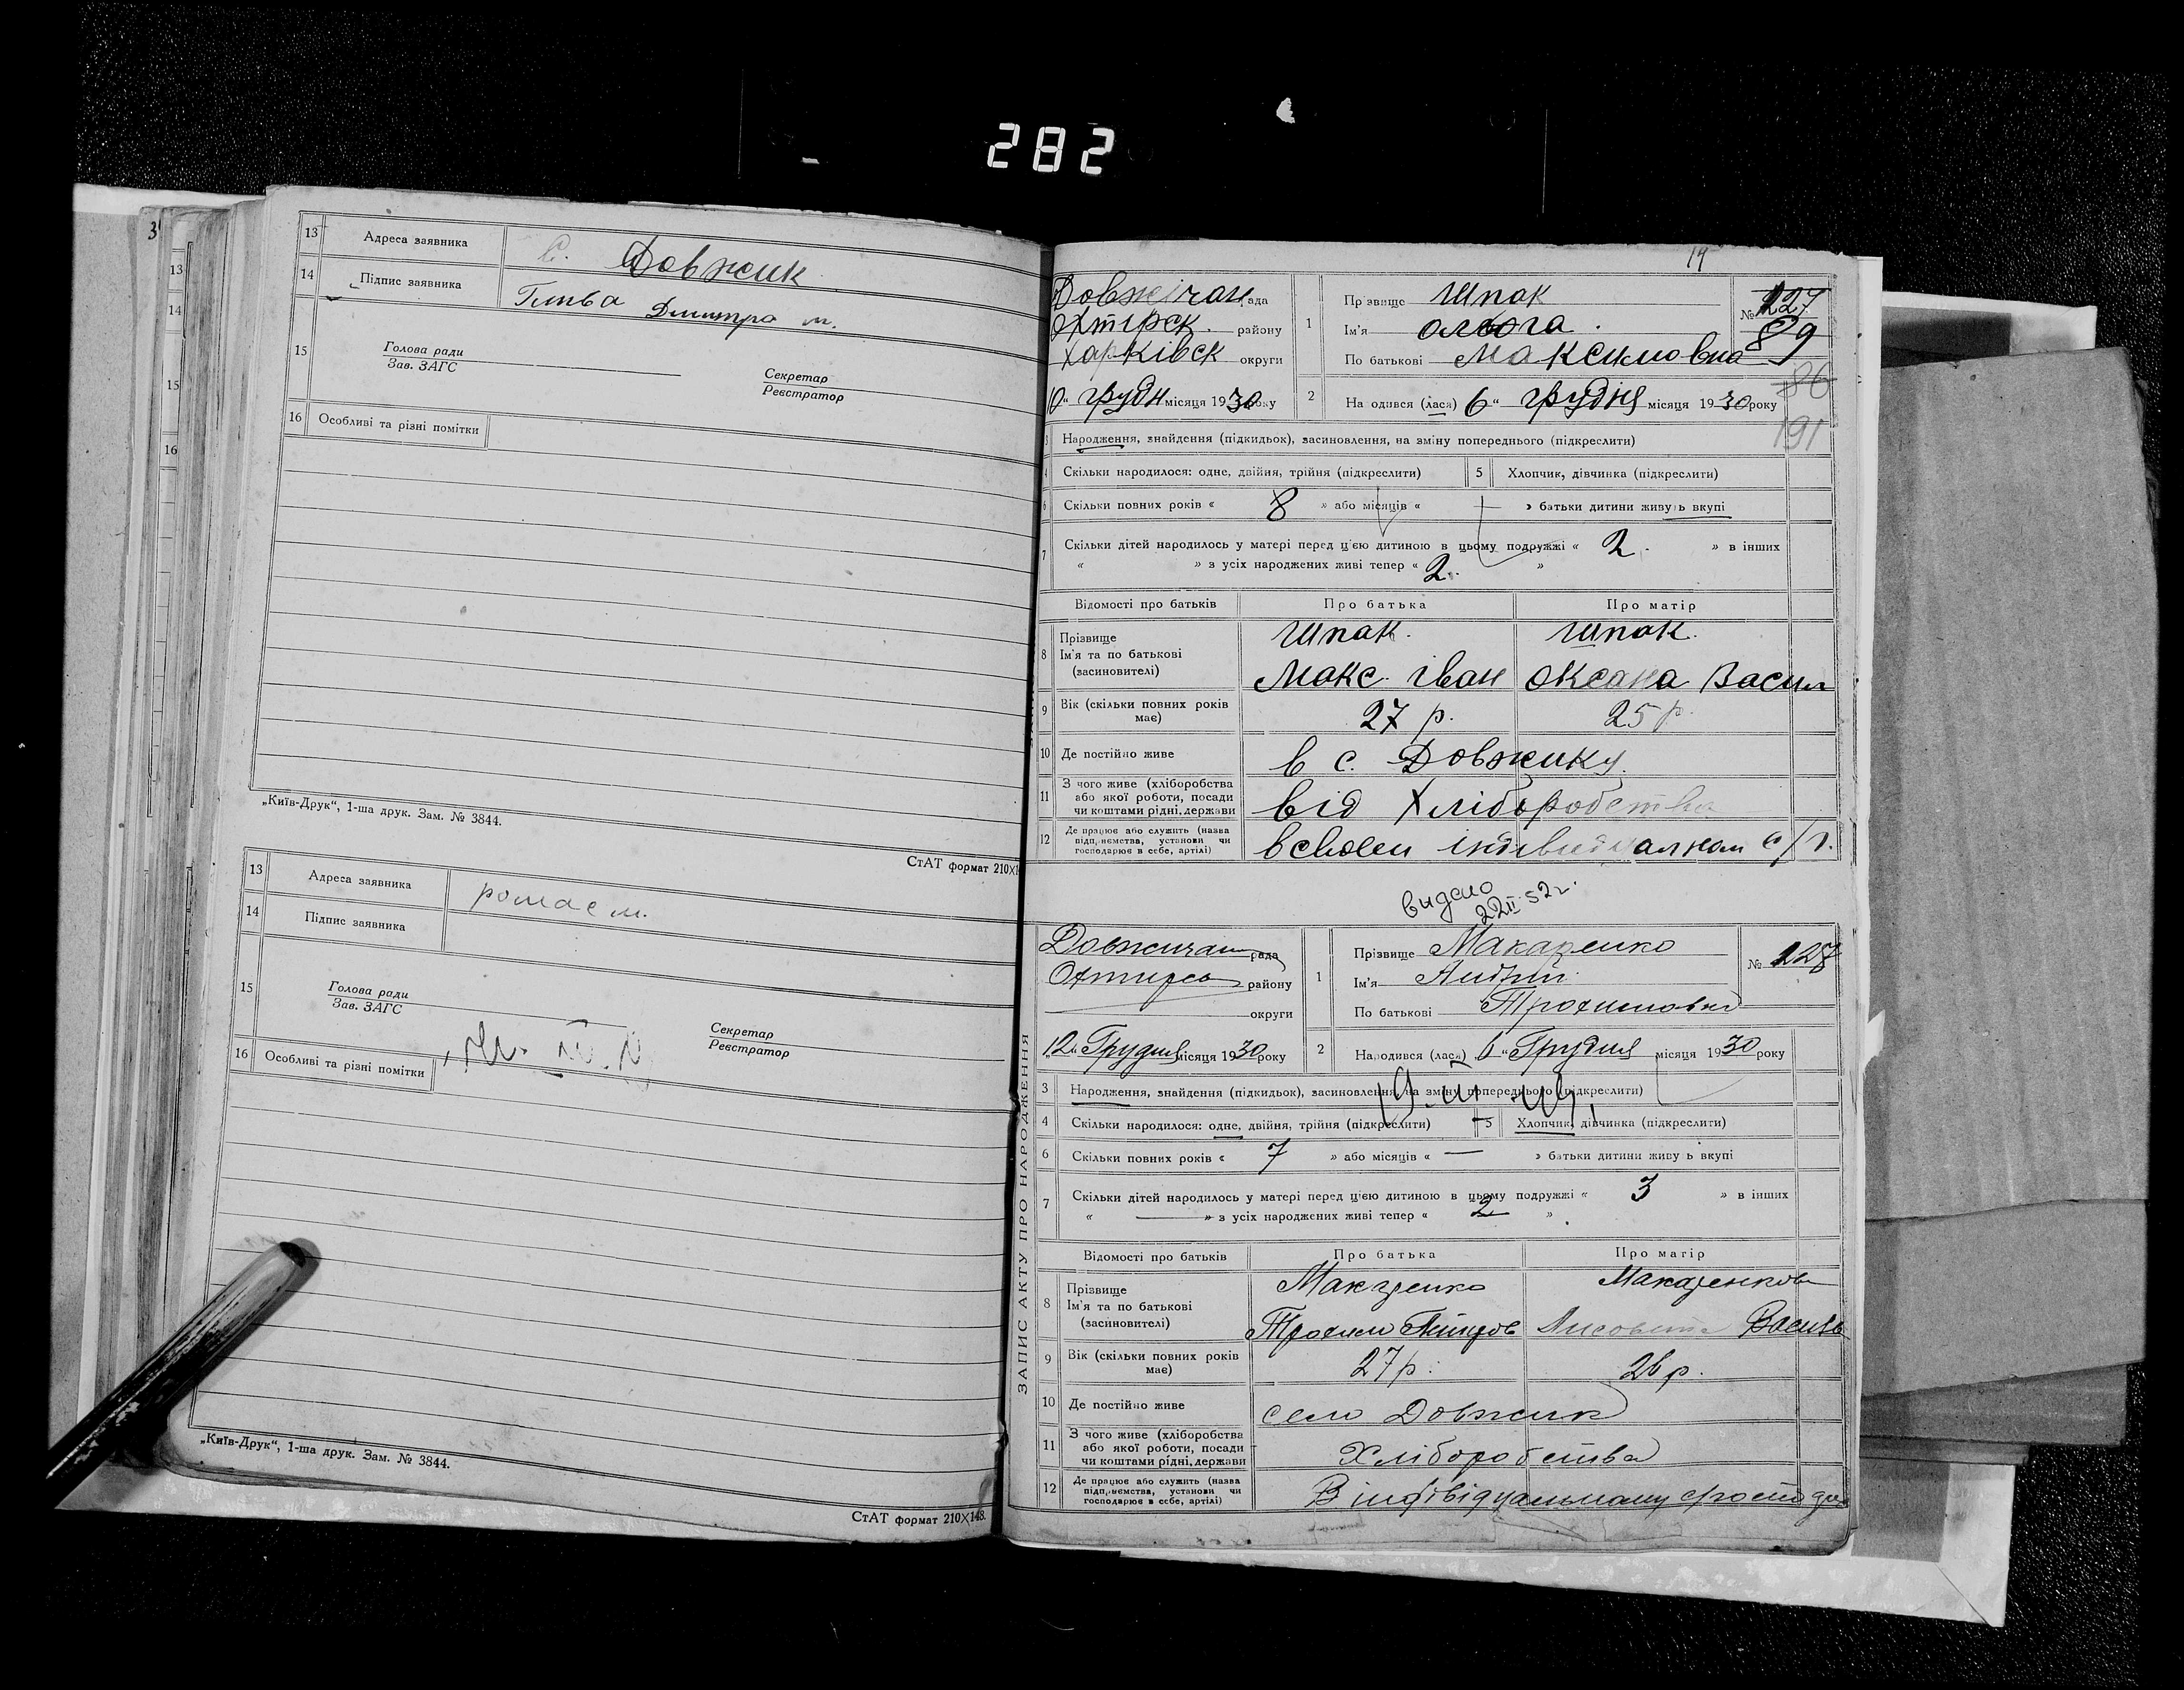 282
13 Адреса заявника С. Довжик
14 Підпис заявника Глива Дмитро м.
15 Голова ради
Зав. ЗАГС
Секретар
Реєстратор
16 Особливі та різні помітки
„Київ-Друк“, 1-ша друк. Зам. № 3844.
СтАТ формат 210X1
13 Адреса заявника
14 Підпис заявника
15 Голова ради
Зав. ЗАГС
Секретар
Реєстратор
16 Особливі та різні помітки
„Київ-Друк“, 1-ша друк. Зам. № 3844.
СтАТ формат 210X148.
13
14
15
16
Довжічан рада
Охтирск. району
Харківск округи
10 „ грудн місяця 1930 року
1 Прізвище Шпак
Ім'я
По батькові Максимовна
№ 227
89
86
191
2 Народився (лася) 6 „ грудня місяця 1930 року
3 Народження, знайдення (підкидьок), засиновлення, на зміну попереднього (підкреслити)
4 Скільки народилося: одне, двійня, трійня (підкреслити) 5 Хлопчик, дівчинка (підкреслити)
6 Скільки повних років « 8 » або місяців « — » батьки дитини живуть вкупі
7 Скільки дітей народилось у матері перед цією дитиною в цьому подружжі « 2. » в інших
« » з усіх народжених живі тепер « 2. »
Відомості про батьків Про батька Про матір
8 Прізвище Шпак. Шпак.
Ім'я та по батькові
(засиновителі) Макс. Іван Оксана Васил
9 Вік (скільки повних років має) 27 р. 25 р.
10 Де постійно живе в с. Довжику.
11 З чого живе (хліборобства
або якої роботи, посади
чи коштами рідні, держави від Хліборобства
12 Де працює або служить (назва
підприємства, установи чи
господарює в себе, артілі)
видано
22 II 52 г.
рада
району
округи
12 „ Грудня місяця 1930 року
1 Прізвище Макаренко
Ім'я Андрій
По батькові
№ 228
2 Народився (лася) 6 „ Грудня місяця 1930 року
3 Народження, знайдення (підкидьок), засиновлення, на зміну попереднього (підкреслити)
4 Скільки народилося: одне, двійня, трійня (підкреслити) 5 Хлопчик, дівчинка (підкреслити)
6 Скільки повних років « 7 » або місяців « — » батьки дитини живуть вкупі
7 Скільки дітей народилось у матері перед цією дитиною в цьому подружжі « 3 » в інших
« — » з усіх народжених живі тепер « 2 »
Відомості про батьків Про батька Про матір
8 Прізвище Макаренко Макаренкова
Ім'я та по батькові
(засиновителі) Трохим
9 Вік (скільки повних років має) 27 р. 26 р.
10 Де постійно живе село Довжик
11 З чого живе (хліборобства
або якої роботи, посади
чи коштами рідні, держави Хліборобства
12 Де працює або служить (назва
підприємства, установи чи
господарює в себе, артілі) В індівідуальному
ЗАПИС АКТУ ПРО НАРОДЖЕННЯ